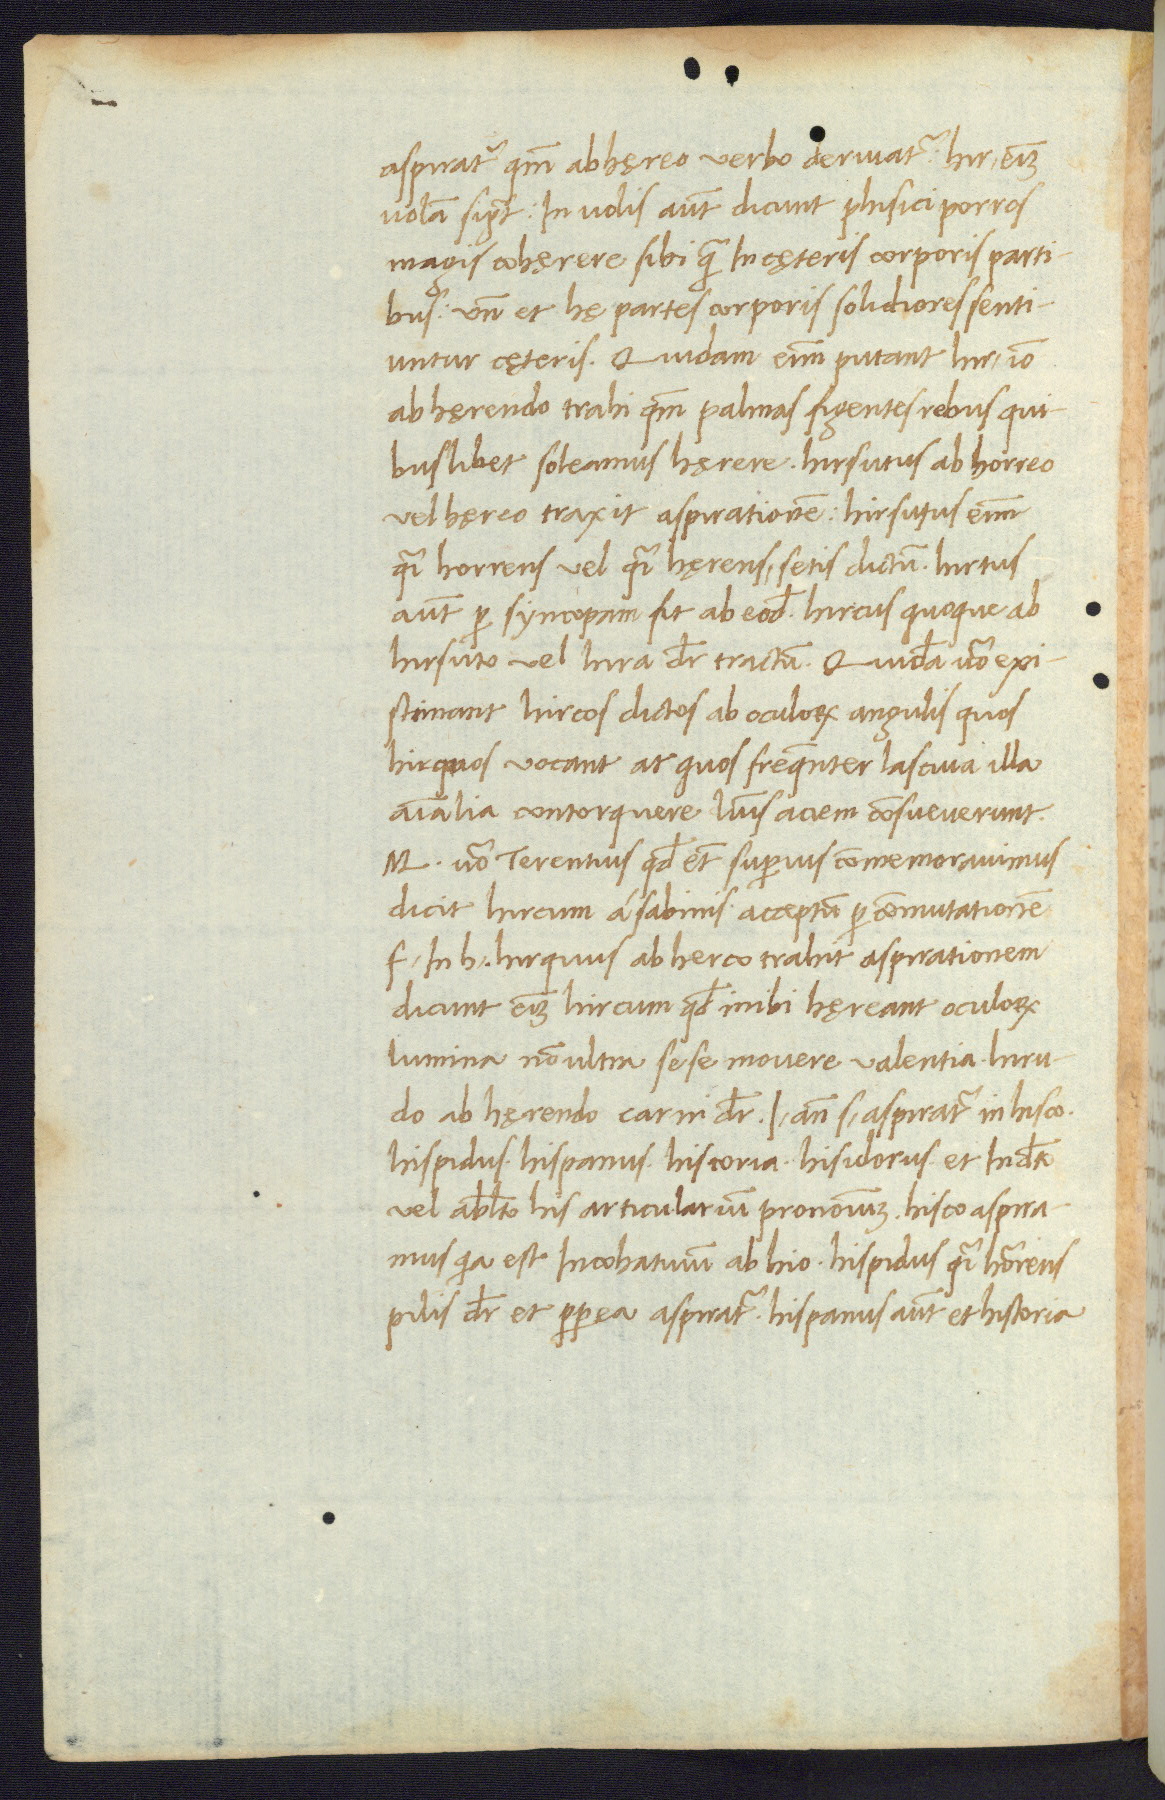 aspirat᷑ qm̅ ab hęreo verbo deriuat᷑: hir, eiꝫ
volā sigͭ: In uolis aūt dicunt phisici porros
magis cohęrere sibi q̄ In cęteris corporis parti-
bus: vn̄ et hę partes corporis solidiores senti-
untur cęteris. Quidam eīm putant hir, iō
ab hęrendo trahi qm̅ palmas figentes rebus qui-
buslibet soleamus hęrere. hirsutus ab horreo
vel hęreo traxit aspirationē: hirsutus eīm
q̄i horrens vel q̄i hęrens, setis dictū. hirtus
aūt ꝑ syncopam fit ab eod̄. hircus quoque ab
hirsuto vel hira dr̄ tractū. Quidā uō exi-
stimant hircos dictos ab oculoꝝ angulis quos
hirquos vocant at quos freq̄nter lasciua illa
aīalia contorquere lūis aciem cōsueuerunt.
M. uō Terentius qd̄ et̄ superius cōmemorauimus
dicit hircum á sabinis acceptū ꝑ cōmutationē
f, In h,. hirquus ab herco trahit aspirationem
dicunt eiꝫ hircum qd̄ inibi hęreant oculoꝝ
lumina nō ultra sese mouere valentia. hiru-
do ab hęrendo carni dr̄. I, an̄ s, aspirat᷑ in hisco.
hispidus. hispanus. historia. hisidorus. et In dt̄o
vel ablt̄o his articulariū pronoīuꝫ. hisco aspira-
mus q̄a est Incohatiuū ab hio. hispidus q̄i hōrens
pilis dr̄ et ꝓpęa aspirat᷑. hispanus aūt et historia